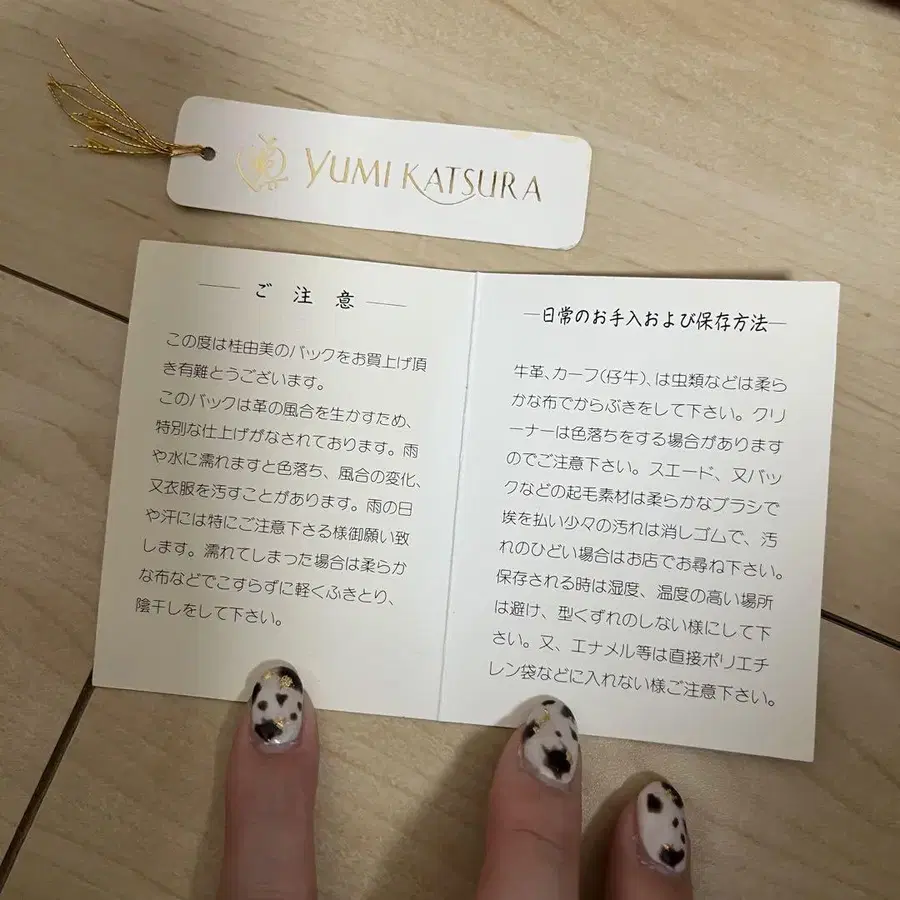 YUMI KATSURA
ご注意
この度は桂由美のバックをお買上げ頂
き有難とうございます。
このバックは革の風合を生かすため、
特別な仕上げがなされております。雨
や水に濡れますと色落ち、風合の変化、
又衣服を汚すことがあります。雨の日
や汗には特にご注意下さる様御願い致
します。濡れてしまった場合は柔らか
な布などでこすらずに軽くふきとり、
陰干しをして下さい。
日常のお手入および保存方法
牛革、カーフ(仔牛)、は虫類などは柔ら
かな布でからぶきをして下さい。クリ
ーナーは色落ちをする場合があります
のでご注意下さい。スエード、又バッ
クなどの起毛素材は柔らかなブラシで
埃を払い少々の汚れは消しゴムで、汚
れのひどい場合はお店でお尋ね下さい。
保存される時は湿度、温度の高い場所
は避け、型くずれのしない様にして下
さい。又、エナメル等は直接ポリエチ
レン袋などに入れない様ご注意下さい。